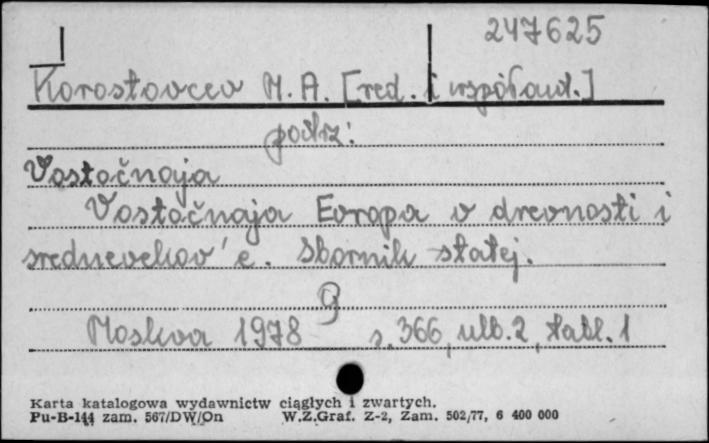 247625
Korostovcev M. A. [red. i współaut.]
patrz:
Vostočnaja
Vostočnaja Evropa v drevnosti i
srednevekov'e. Sbornik statej.
Moskva 1978 s. 366, ulb. 2, tabl. 1
Karta katalogowa wydawnictw ciągłych i zwartych.
Pu-B-144 zam. 567/DW/On W.Z.Graf. Z-2, Zam. 502/77, 6 400 000